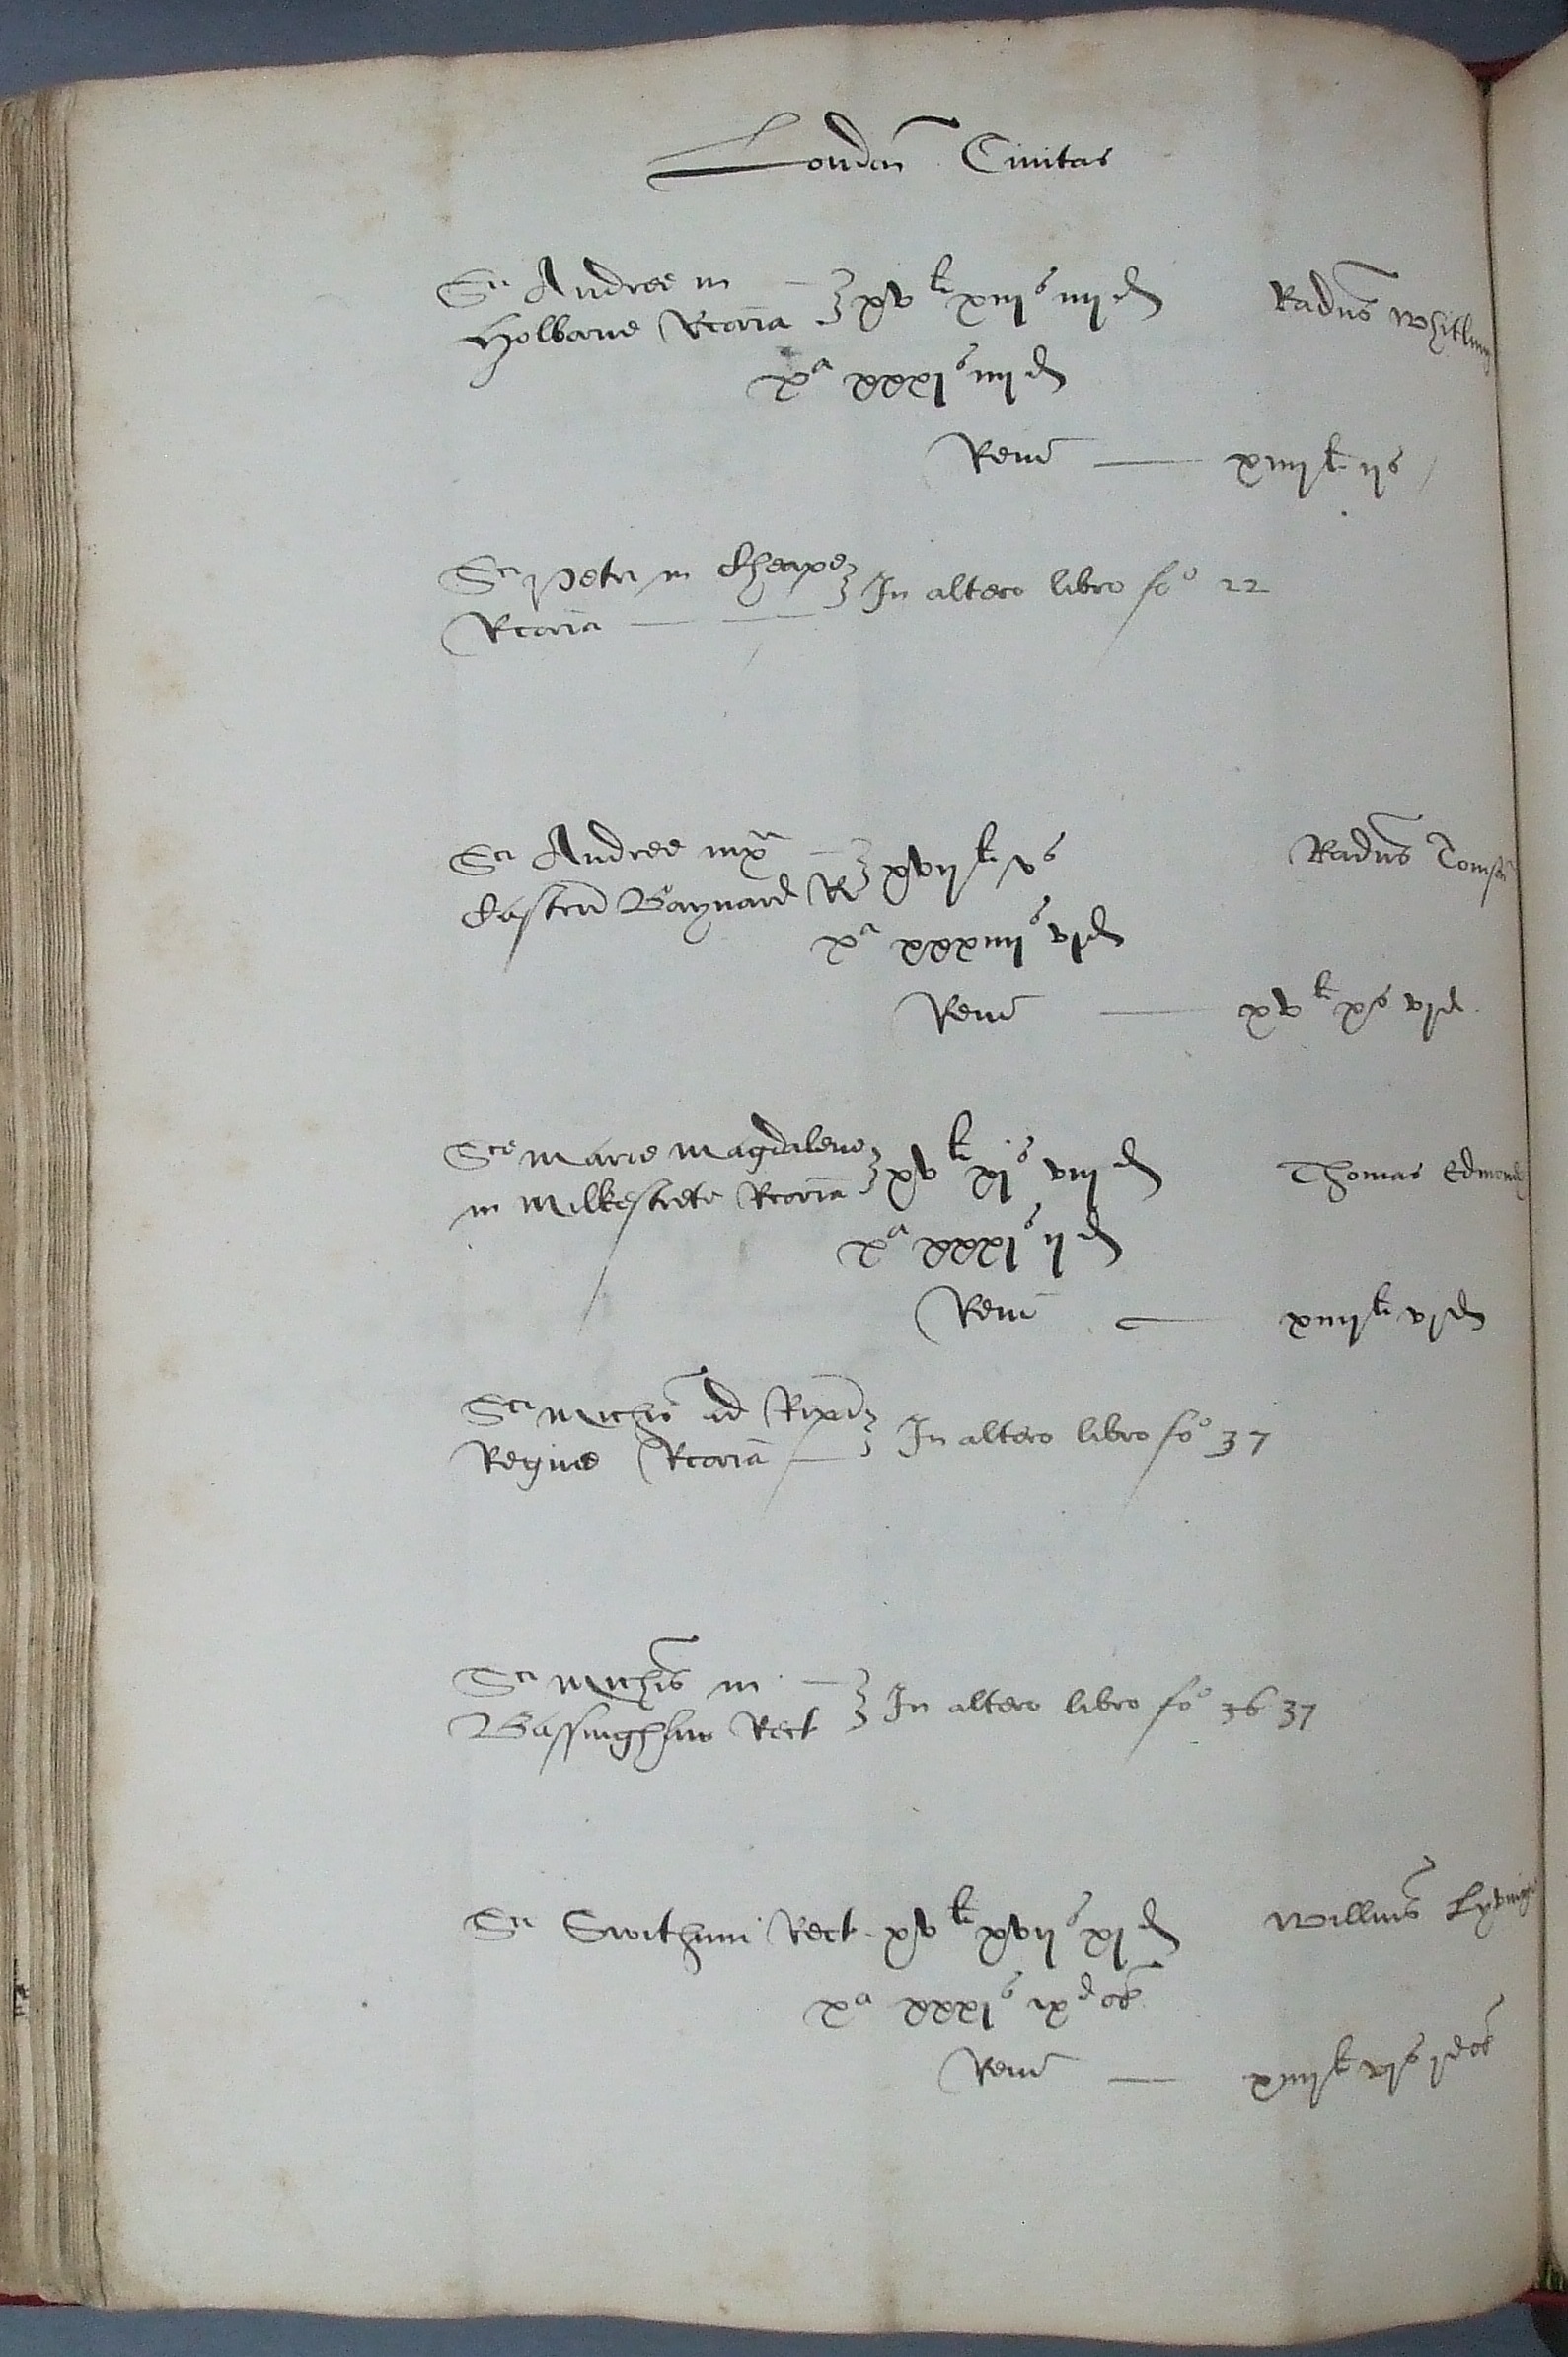 London Civitas
Sci Andree in
Holborne Rcoria } xv li xiii s iiii d Radus Whitling
xa xxxi s iiii d
Rem — xiiii li ii s
Sci Petri in Cheape
Rcoria — — } In altero libro fo 22
Sci Andree iuxa
Castru Baynard R } xvii li v s Radus Tomson
xa xxxiiii s vi d
Rem — xv li x s vi d
Sce Marie Magdalene
in Milkestrete Rcoria } xv li xi s viii d Thomas Edmonds
xa xxxi s ii d
Rem — xiiii li vi d
Sci Michis ad Ripa
Regine Rcoria — } In altero libro fo 37
Sci Michis in
Bassinghsaw Rect } In altero libro fo 36 37
Sci Swithuni Rect xv li xvii s xi d Willmus
xa xxxi s ix d ob
Rem — xiiii li vi s i d ob